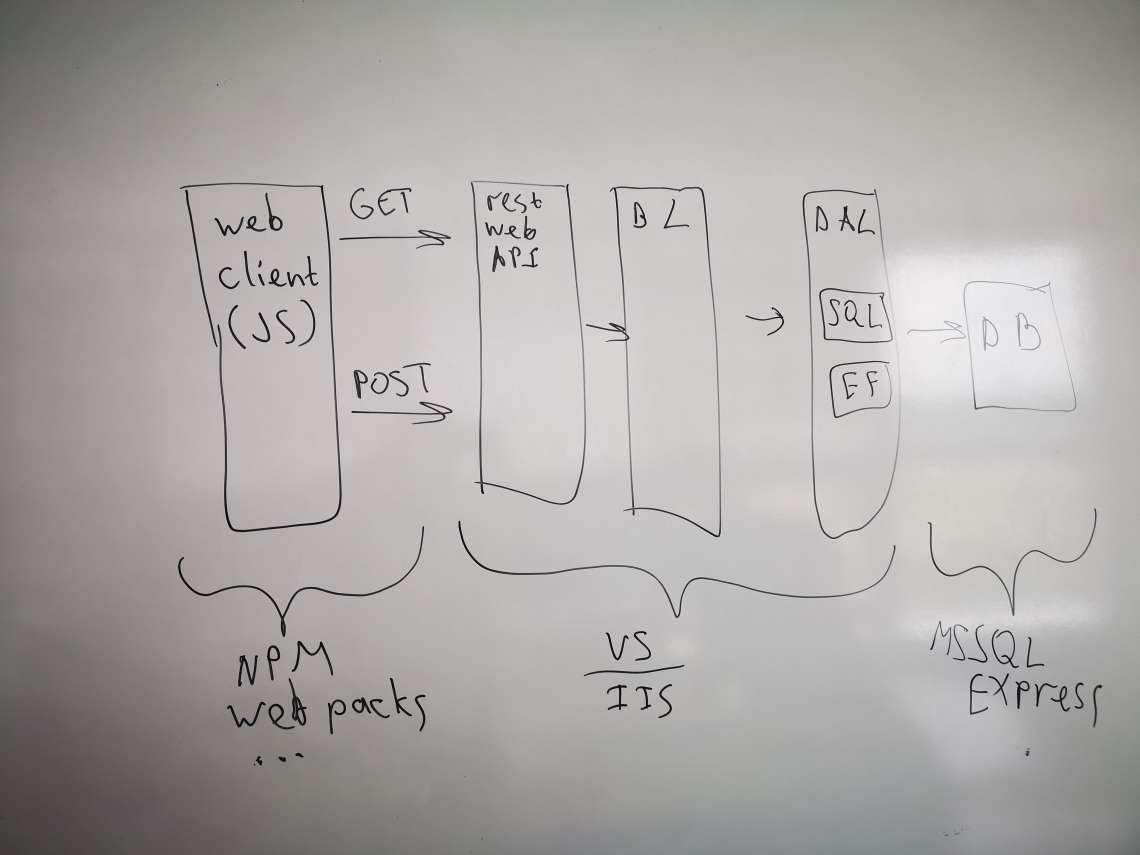 web
client
(JS)
GET
POST
rest
web
API
BL
DAL
SQL
EF
DB
NPM
web packs
...
VS
IIS
MSSQL
EXPress